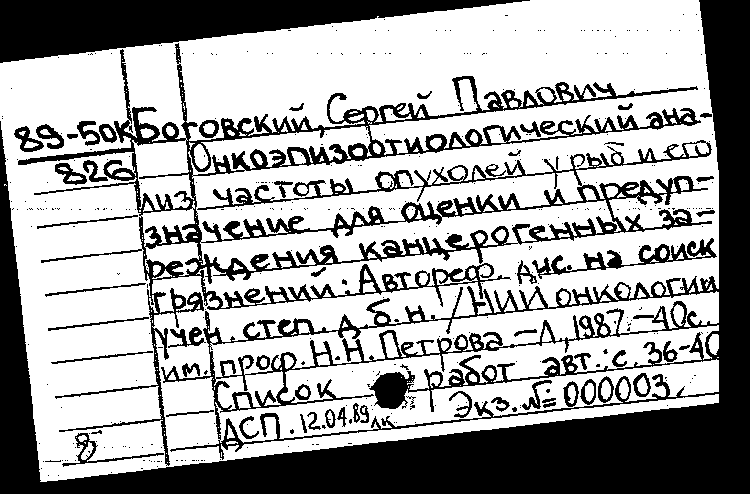 89-50К Боговский, Сергей Павлович.
826 Онкоэпизоотиологический ана-
лиз частоты опухолей у рыб и его
значение для оценки и предуп-
реждения канцерогенных за-
грязнений: Автореф. дис. на соиск
учен. степ. д.б.н. /НИИ онкологии
им. проф. Н.Н. Петрова.-Л, 1987.-40с.
Список работ авт.: с. 36-40
ДСП. 12.04.89 лк Экз. №=000003.
8